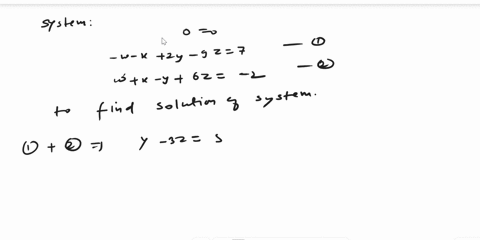 System:
0 = 0
-w-x +2y -9z = 7 — ①
w+x -y + 6z = -2 — ②
to find solution of system.
① + ② ⇒ y -3z = 5